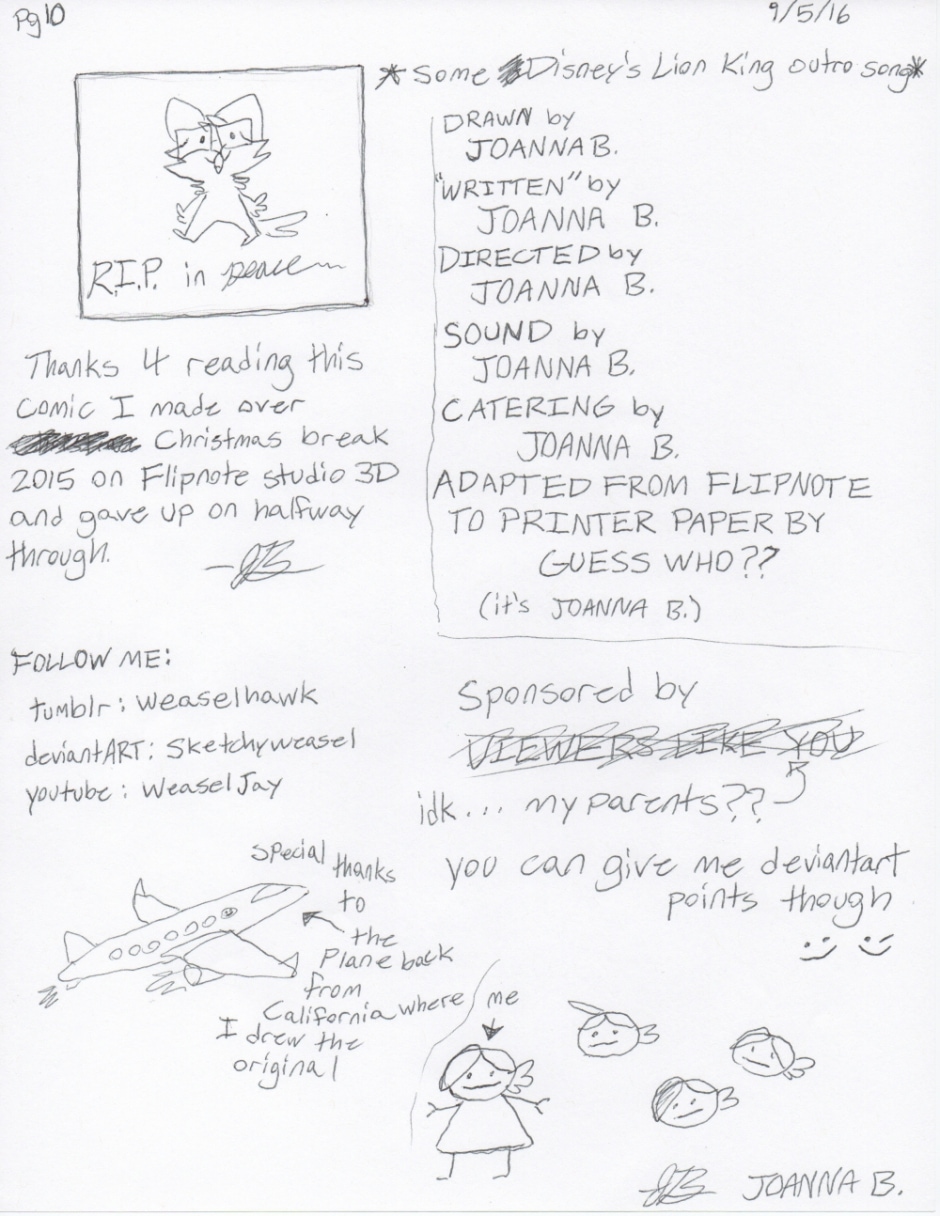 Pg 10
9/5/16
* some Disney's Lion King outro song *
R.I.P. in peace
DRAWN by
JOANNA B.
"WRITTEN" by
JOANNA B.
DIRECTED by
JOANNA B.
SOUND by
JOANNA B.
CATERING by
JOANNA B.
ADAPTED FROM FLIPNOTE
TO PRINTER PAPER BY
GUESS WHO??
(it's JOANNA B.)
Thanks 4 reading this
comic I made over
Christmas break
2015 on Flipnote studio 3D
and gave up on halfway
through.
-JB
FOLLOW ME:
tumblr: weaselhawk
deviantART: Sketchyweasel
youtube: WeaselJay
Sponsored by
VIEWERS LIKE YOU
idk... my parents??
you can give me deviantart
points though
:) :)
special thanks
to
the
Plane back
from
California where
I drew the
original
me
JB JOANNA B.